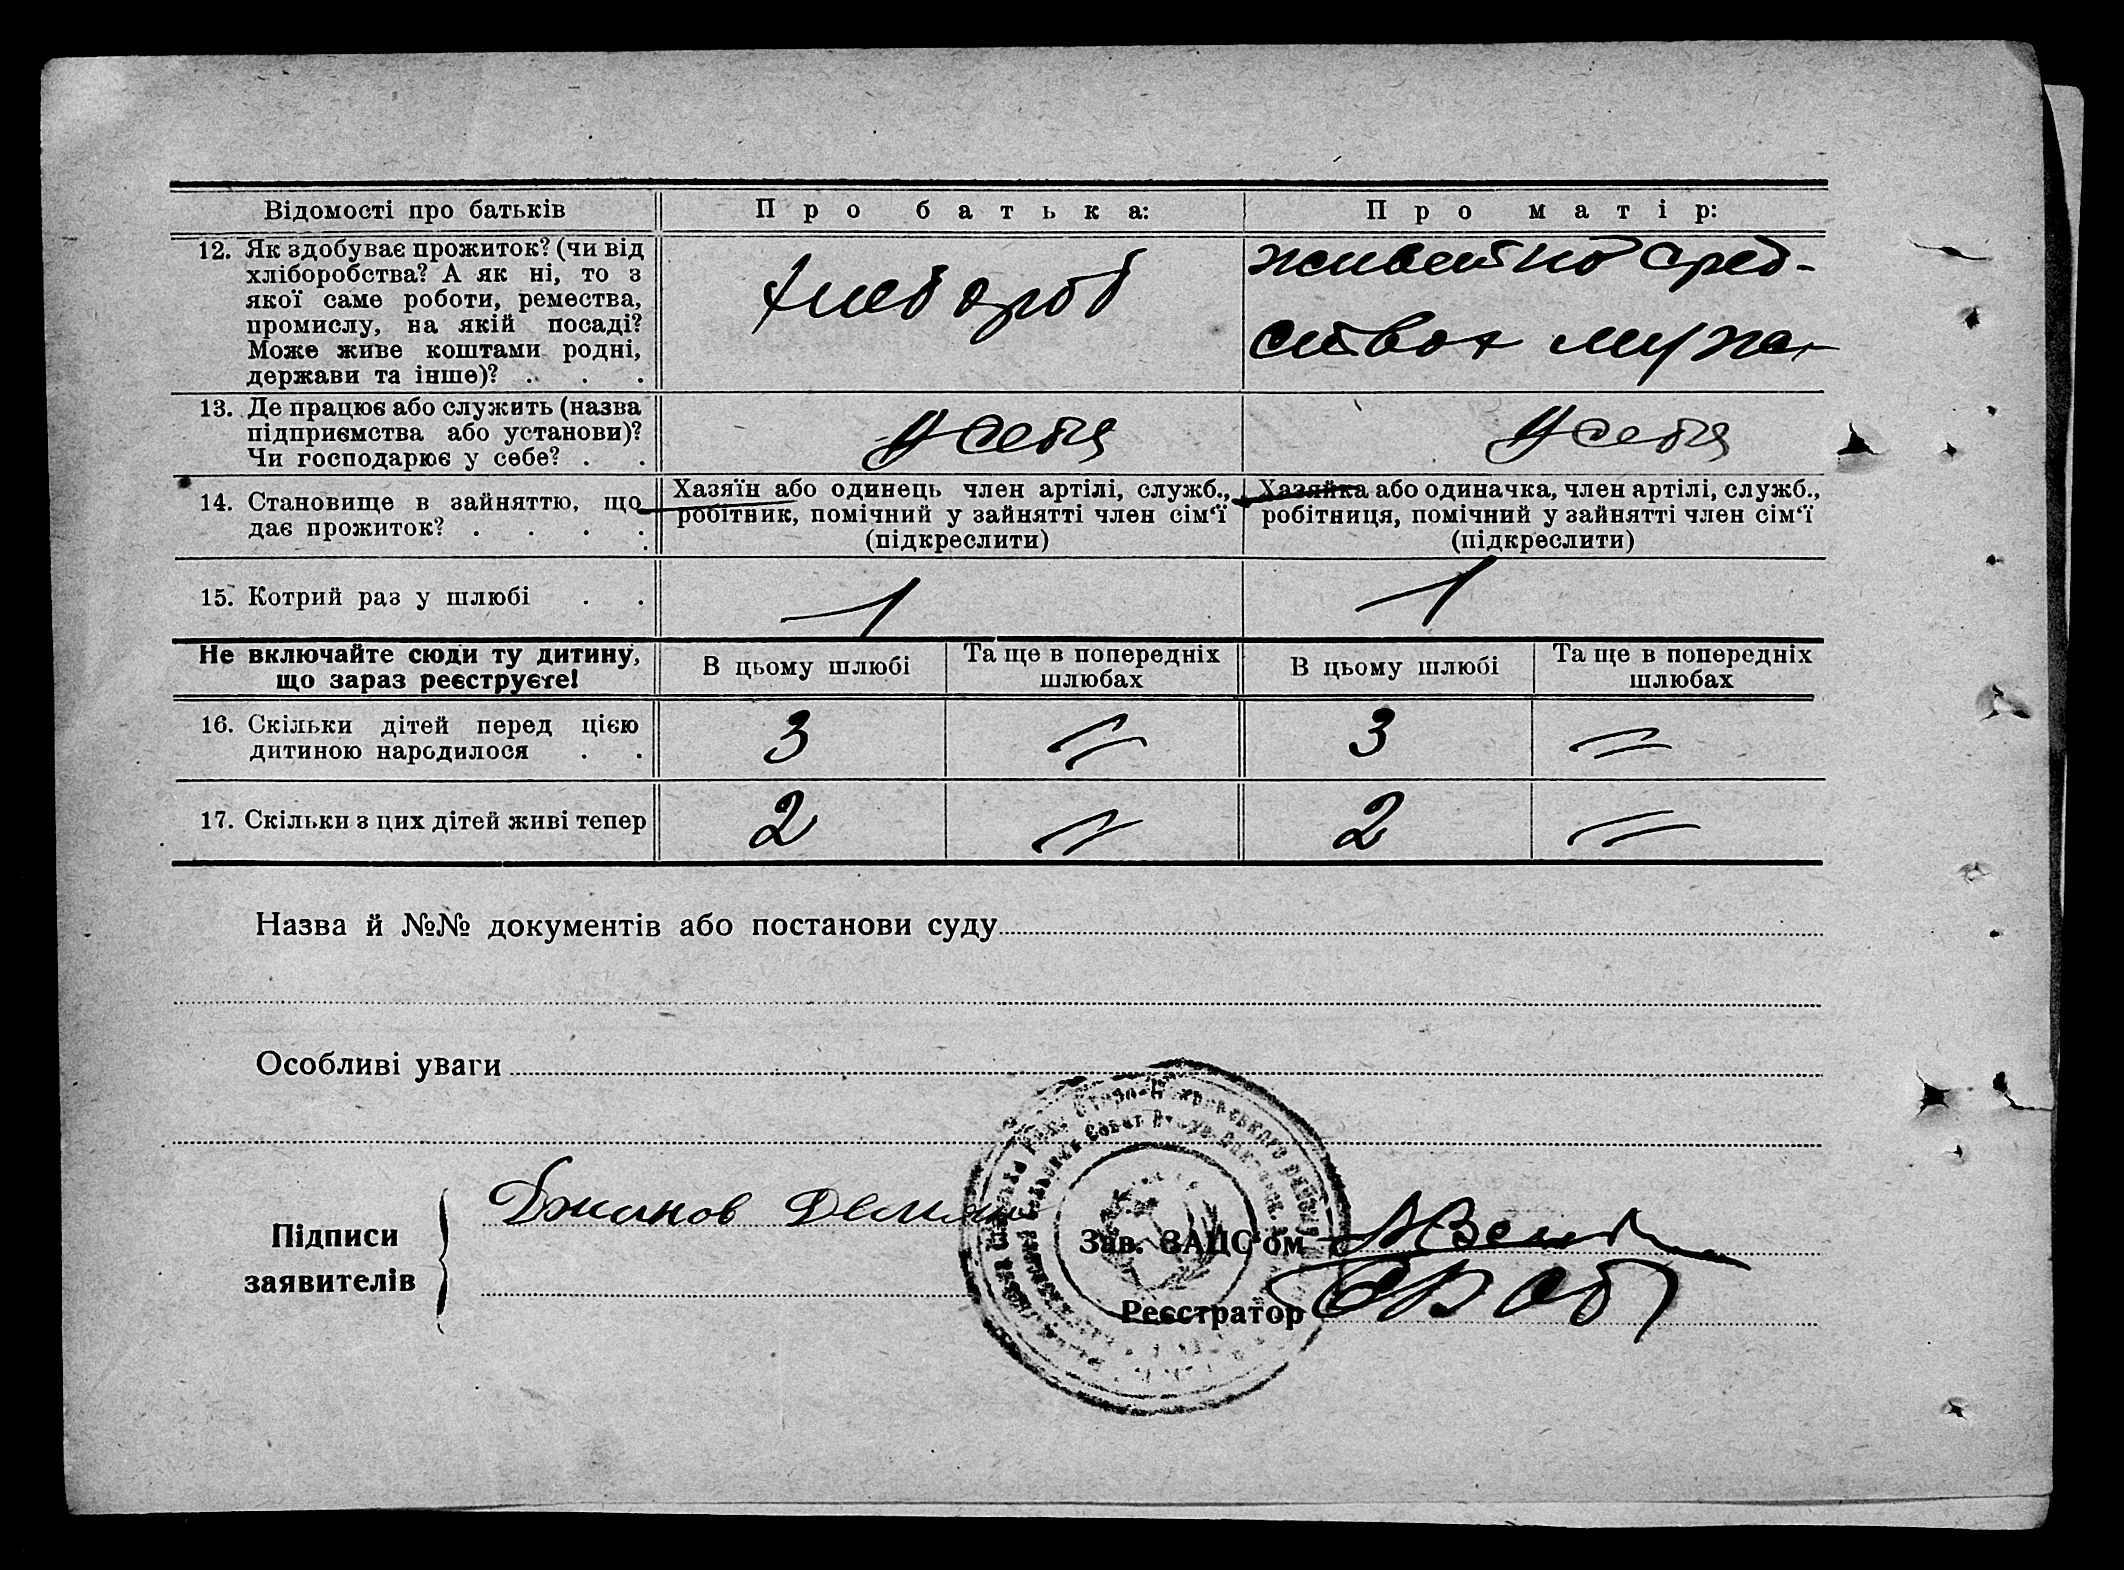 Відомості про батьків
Про батька:
Про матір:
12. Як здобуває прожиток? (чи від
хліборобства? А як ні, то з
якої саме роботи, ремества,
промислу, на якій посаді?
Може живе коштами родні,
держави та інше)? . . .
хлебороб
живет на сред-
ствах мужа
13. Де працює або служить (назва
підприємства або установи)?
Чи господарює у себе? . .
У себя
У себя
14. Становище в зайняттю, що
дає прожиток? . . . .
Хазяїн або одинець член артілі, служб.,
робітник, помічний у зайнятті член сім‘ї
(підкреслити)
Хазяйка або одиначка, член артілі, служб.,
робітниця, помічний у зайнятті член сім‘ї
(підкреслити)
15. Котрий раз у шлюбі . .
1
1
Не включайте сюди ту дитину,
що зараз реєструєте!
В цьому шлюбі
Та ще в попередніх
шлюбах
В цьому шлюбі
Та ще в попередніх
шлюбах
16. Скільки дітей перед цією
дитиною народилося . .
3
=
3
=
17. Скільки з цих дітей живі тепер
2
=
2
=
Назва й №№ документів або постанови суду
Особливі уваги
Підписи
заявителів
Джанов
Зав. ЗАЦС‘ом
Реєстратор